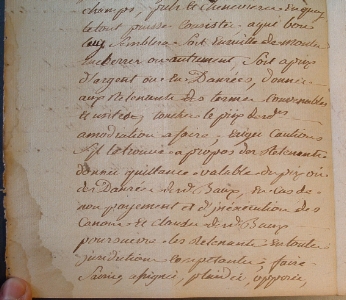 champs, prés et chenevieres
le tout puisse consister, a qui bon
leur semblera, soit
ou autrement, soit a prix
d'argent ou en Danrées, donner
aux Retenants des termes convenables
et usités, toucher le prix des
amodiation a faire, exiger cautions
s'il le trouve a propos des Retenants
donner quittance valable du prix ou
des Danrées desd. Baux, en cas de
non payement et d'inexecution des
Canons et Clauses desd. Baux
poursuivre les Retenants en toutes
jurisdictions competantes, a faire
plaider, opposer,